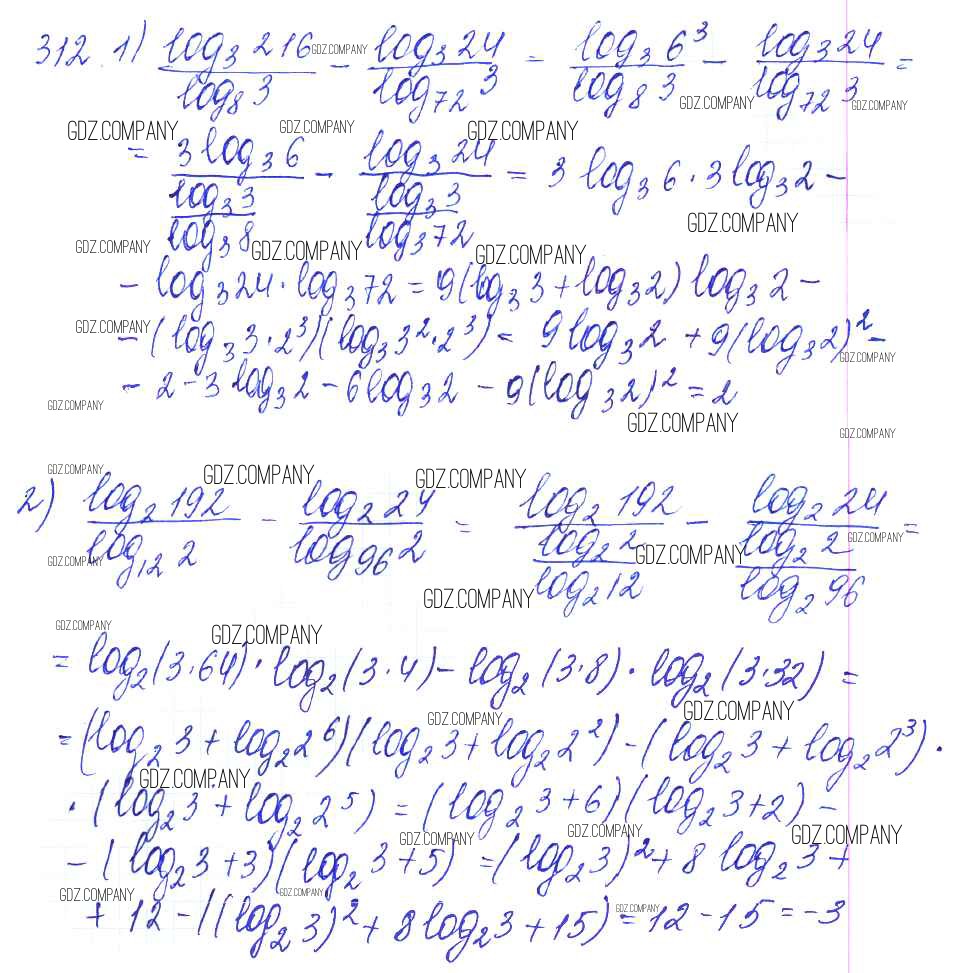 312. 1) log₃ 216 / log₈ 3 − log₃ 24 / log₇₂ 3 = log₃ 6³ / log₈ 3 − log₃ 24 / log₇₂ 3 =
= 3 log₃ 6 / (log₃ 3 / log₃ 8) − log₃ 24 / (log₃ 3 / log₃ 72) = 3 log₃ 6 · 3 log₃ 2 −
− log₃ 24 · log₃ 72 = 9(log₃ 3 + log₃ 2) log₃ 2 −
− (log₃ 3·2³)(log₃ 3²·2³) = 9 log₃ 2 + 9(log₃ 2)² −
− 2 − 3 log₃ 2 − 6 log₃ 2 − 9(log₃ 2)² = 2
2) log₂ 192 / log₁₂ 2 − log₂ 24 / log₉₆ 2 = log₂ 192 / (log₂ 2 / log₂ 12) − log₂ 24 / (log₂ 2 / log₂ 96) =
= log₂(3·64) · log₂(3·4) − log₂(3·8) · log₂(3·32) =
= (log₂ 3 + log₂ 2⁶)(log₂ 3 + log₂ 2²) − (log₂ 3 + log₂ 2³) ·
· (log₂ 3 + log₂ 2⁵) = (log₂ 3 + 6)(log₂ 3 + 2) −
− (log₂ 3 + 3)(log₂ 3 + 5) = (log₂ 3)² + 8 log₂ 3 +
+ 12 − ((log₂ 3)² + 8 log₂ 3 + 15) = 12 − 15 = −3
GDZ.COMPANY